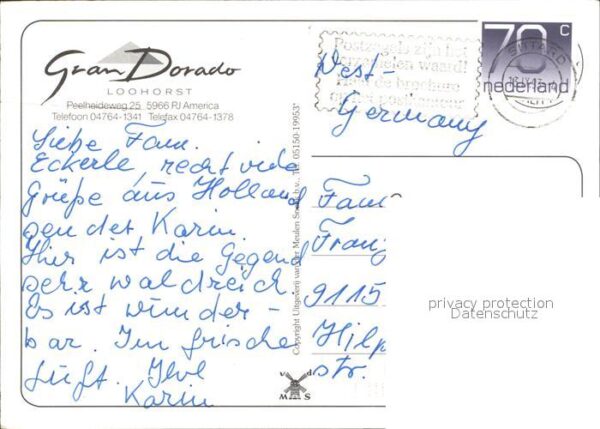 Gran Dorado
LOOHORST
Peelheideweg 25 5966 RJ America
Telefoon 04764-1341 Telefax 04764-1378
Liebe Fam.
Eckerle, recht viele
Grüße aus Holland
sendet Karin.
Hier ist die Gegend
sehr waldreich.
Es ist wunder-
bar. Im frische
Luft. Ihre
Karin
Copyright Uitgeverij van der Meulen Sneek b.v., Tel. 05150-19953*
v d
M S
Postzegels zijn het
verzamelen waard!
Haal de brochure
op het postkantoor
70 c
nederland
SITTARD
West-
Germany
Fam
Franz
9115
Hilp
str.
privacy protection
Datenschutz